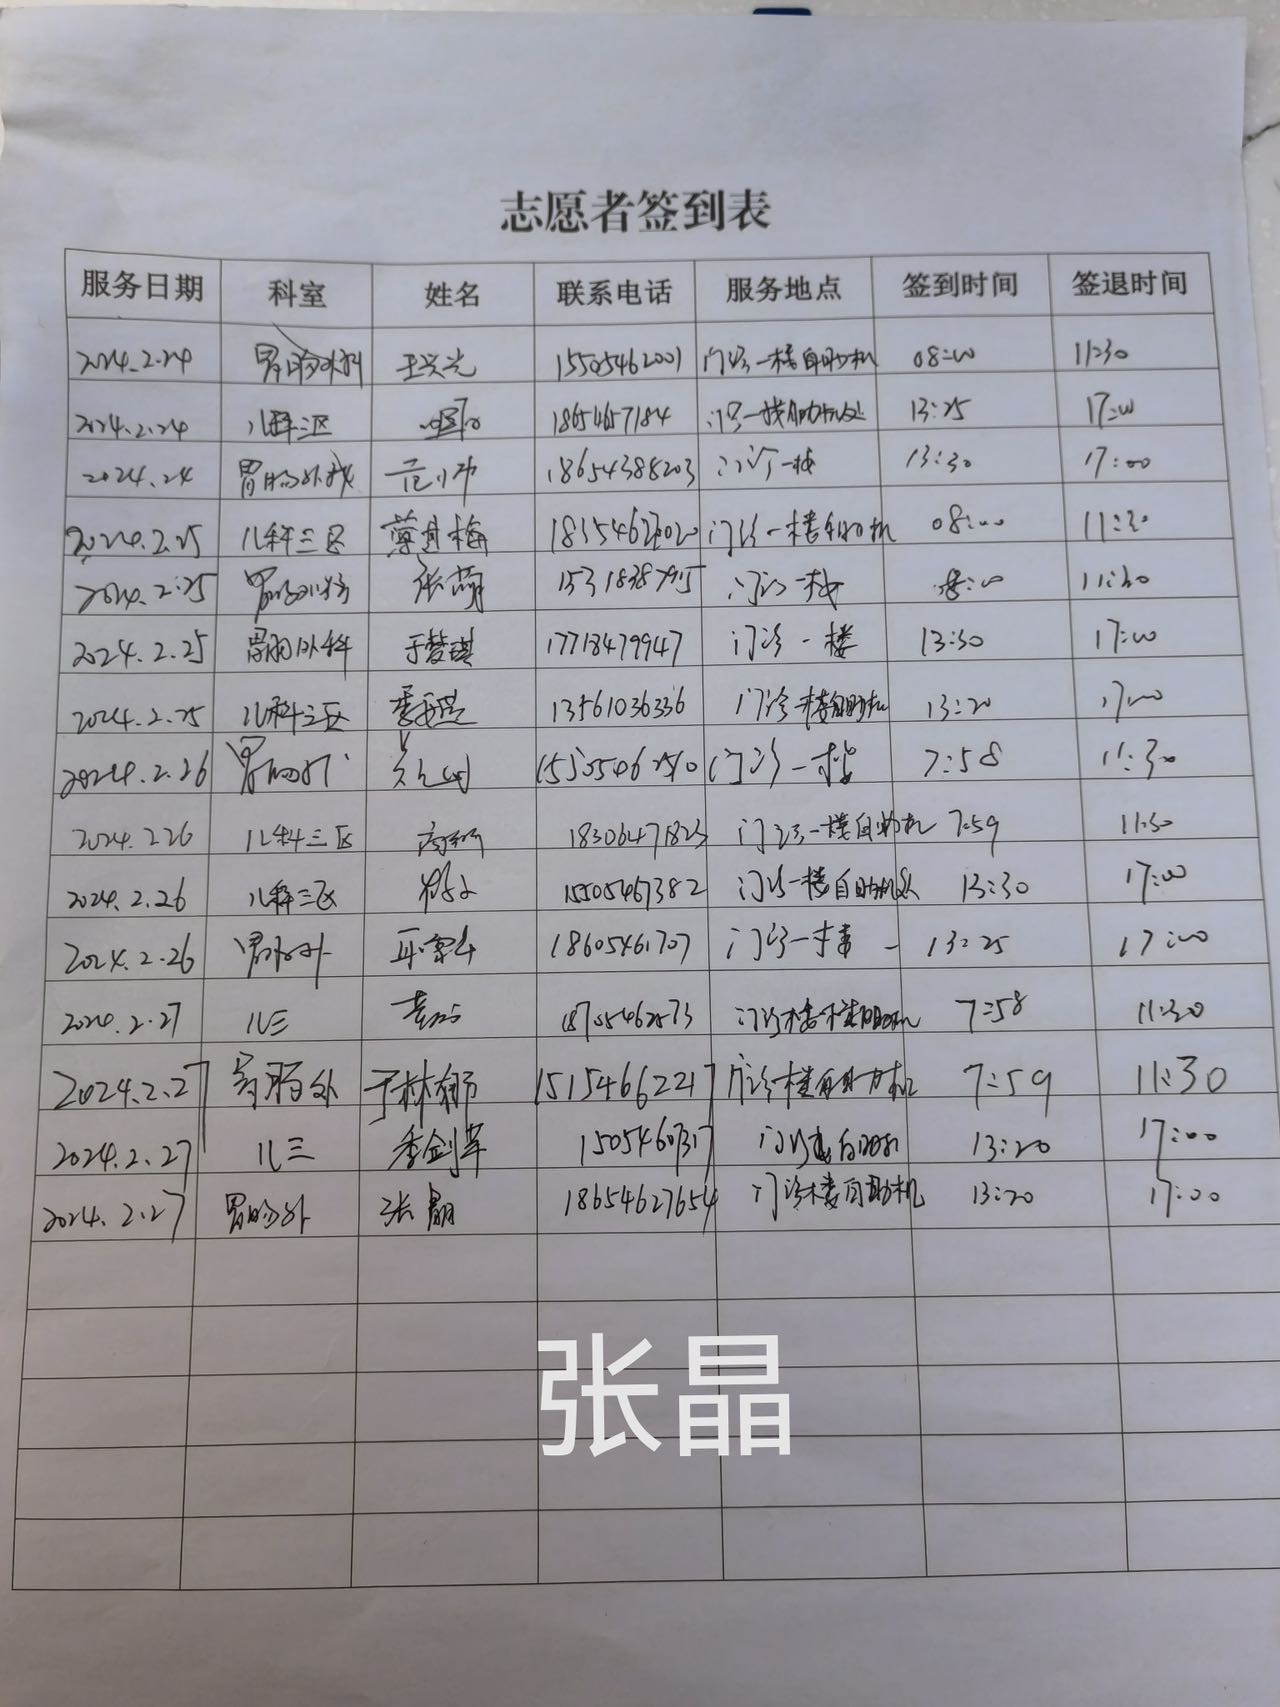 志愿者签到表
服务日期 科室 姓名 联系电话 服务地点 签到时间 签退时间
2024.2.24 胃肠外科 王兴光 15505462001 门诊一楼自助机 08:00 11:30
2024.2.24 儿科三区 18654657184 门诊一楼自助机处 13:25 17:00
2024.24 胃肠外科 18654388203 门诊一楼 13:30 17:00
2024.2.25 儿科三区 薄其梅 门诊一楼自助机 08:00 11:30
2024.2.25 胃肠外科 张萌 15318387915 门诊一楼 8:00 11:30
2024.2.25 胃肠外科 于梦琪 17718479947 门诊一楼 13:30 17:00
2024.2.25 儿科三区 13561036336 门诊一楼自助机 13:20 17:00
2024.2.26 胃肠外 门诊一楼 7:58 11:30
2024.2.26 儿科三区 18306471823 门诊一楼自助机 7:59 11:30
2024.2.26 儿科三区 15505467382 门诊一楼自助机处 13:30 17:00
2024.2.26 胃肠外 18605461707 门诊一楼 13:25 17:00
2024.2.27 儿三 18705462573 7:58 11:30
2024.2.27 胃肠外 15154662217 门诊楼自助机 7:59 11:30
2024.2.27 儿三 季剑军 15054607317 门诊楼自助机 13:20 17:00
2024.2.27 胃肠外 张晶 18654627654 门诊楼自助机 13:20 17:00
张晶